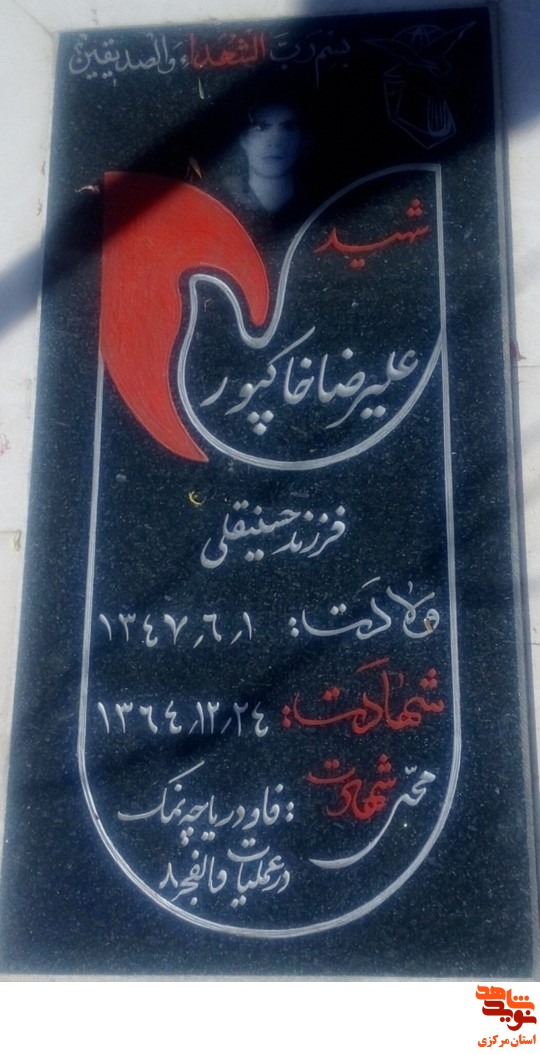 بسم رب الشهداء والصدیقین
شهید
علیرضا خاکپور
فرزند حسینقلی
ولادت: ۱۳۴۷٫۶٫۱
شهادت: ۱۳۶۴٫۱۲٫۲۴
محل شهادت: فاو دریاچه نمک
در عملیات والفجر ۸
نوید شاهد
استان مرکزی